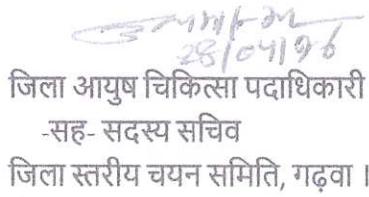 28/04/26
जिला आयुष चिकित्सा पदाधिकारी
-सह- सदस्य सचिव
जिला स्तरीय चयन समिति, गढ़वा ।